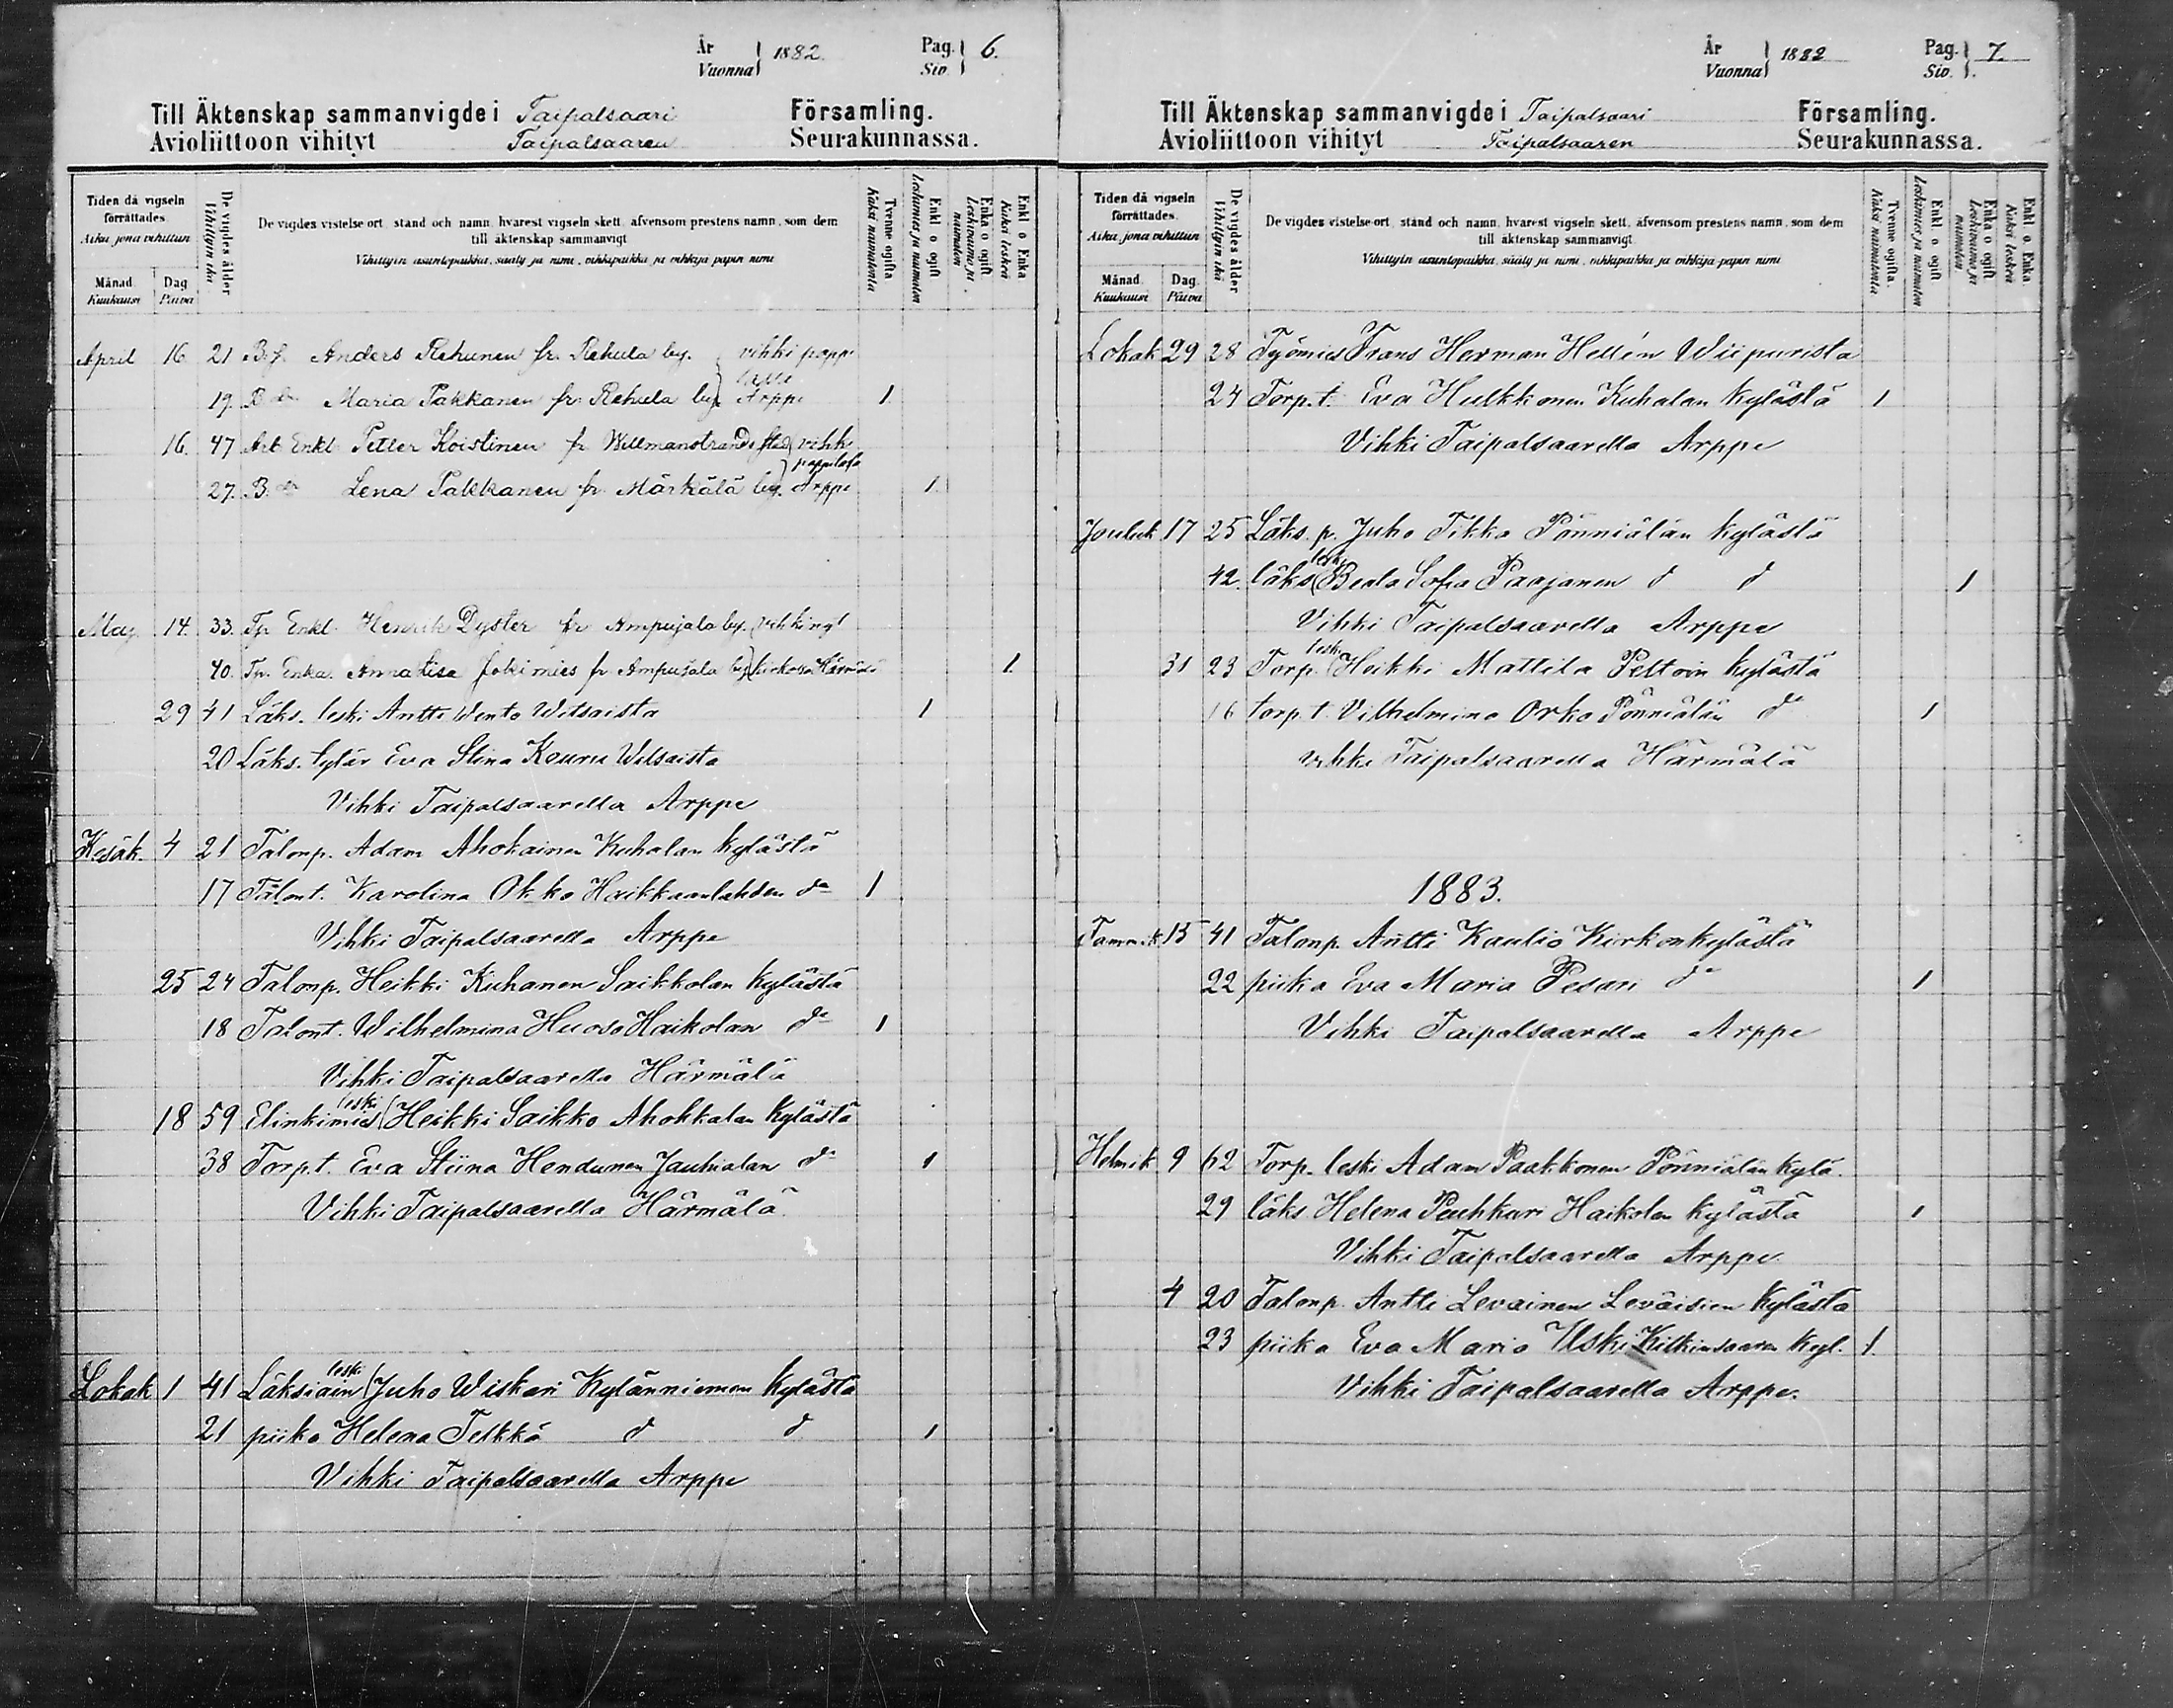 År 1882. Pag. 6.
Vuonna Siv.
Till Äktenskap sammanvigde i Taipalsaari Församling.
Avioliittoon vihityt Taipalsaaren Seurakunnassa.
Tiden då vigseln förrättades.
Aika, jona vihittiin
Månad. Dag
Kuukausi Päivä
De vigdes ålder
Vihittyin ikä
De vigdes vistelse ort, stånd och namn, hvarest vigseln skett, äfvensom prestens namn, som dem
till äktenskap sammanvigt
Vihittyin asuntopaikka, sääty ja nimi, vihkipaikka ja vihkijä papin nimi
Tvenne ogifta.
Kaksi naimatonta
Enkl. o. ogift
Leskimies ja naimaton
Enka o. ogift
Leskivaimo ja naimaton
Enkl. o. Enka
Kaksi leskeä
April 16 21 Anders Rehunen fr. Rehula by. vihki pappi
19. Maria Pakkanen fr. Rehula by Arppe 1
16. 47 Arb. Enkl. Petter Koistinen fr. Willmanstrands stad vihki
27. Lena Pakkanen fr. Märkälä by. Arppe 1
May. 14. 33. Tp. Enkl. Henrik Dyster fr. Ampujala by.
40. Tp. Enka. Anna Lisa Jokimies fr. Ampujala by kirkossa Härmälä 1.
29 41 Läks. leski Antti Wento Witsaista 1
20 Läks. tytär Eva Stina Kauru Witsaista
Vihki Taipalsaarella Arppe
Kesäk. 4 21 Talonp. Adam Ahokainen Kuhalan kylästä
17 Talont. Karolina Okko Haikkaanlahden do 1
Vihki Taipalsaarella Arppe
25 24 Talonp. Heikki Kuhanen Saikkolan kylästä
18 Talont. Wilhelmina Huoso Haikolan do 1
Vihki Taipalsaarella Härmälä
leski
18 59 Elinkimies Heikki Saikko Ahokkalan kylästä
38 Torp.t. Eva Stiina Hendunen Jauhialan do 1
Vihki Taipalsaarella Härmälä
leski
Lokak 1 41 Läksiäin Juho Wiskari Kylänniemen kylästä
21 piika Helena Telkkä d d 1
Vihki Taipalsaarella Arppe
År 1882 Pag. 7.
Vuonna Siv.
Till Äktenskap sammanvigde i Taipalsaari Församling.
Avioliittoon vihityt Taipalsaaren Seurakunnassa.
Tiden då vigseln förrättades.
Aika, jona vihittiin
Månad. Dag.
Kuukausi Päivä
De vigdes ålder
Vihittyin ikä
De vigdes vistelse-ort, stånd och namn, hvarest vigseln skett, äfvensom prestens namn, som dem
till äktenskap sammanvigt.
Vihittyin asuntopaikka, sääty ja nimi, vihkipaikka ja vihkijä papin nimi
Tvenne ogifta.
Kaksi naimatonta
Enkl. o. ogift
Leskimies ja naimaton
Enka o. ogift
Leskivaimo ja naimaton
Enkl. o. Enka.
Kaksi leskeä
Lokak 29 28 Työmies Frans Herman Hellén Wiipurista
24 Torp.t. Eva Hulkkonen Kuhalan kylästä 1
Vihki Taipalsaarella Arppe
Jouluk 17 25 Läks. p. Juho Tikka Pönniälän kylästä
leski
42. läks Beata Sofia Paajanen d d 1
Vihki Taipalsaarella Arppe
leski
31 23 Torp. Heikki Mattila Peltoin kylästä
16 torp.t. Vilhelmina Orko Pönniälän do 1
vihki Taipalsaarella Härmälä
1883.
Tammik. 15 41 Talonp. Antti Kaulio Kirkonkylästä
22 piika Eva Maria Pesari do 1
Vihki Taipalsaarella Arppe
Helmik 9 62 Torp. leski Adam Paakkonen Pönniälän kylä.
29 läks Helena Peuhkuri Haikolan kylästä 1
Vihki Taipalsaarella Arppe.
4 20 Talonp. Antti Levainen Leväisien kylästä
23 piika Eva Maria Uski Kilkinsaaren kyl. 1.
Vihki Taipalsaarella Arppe.